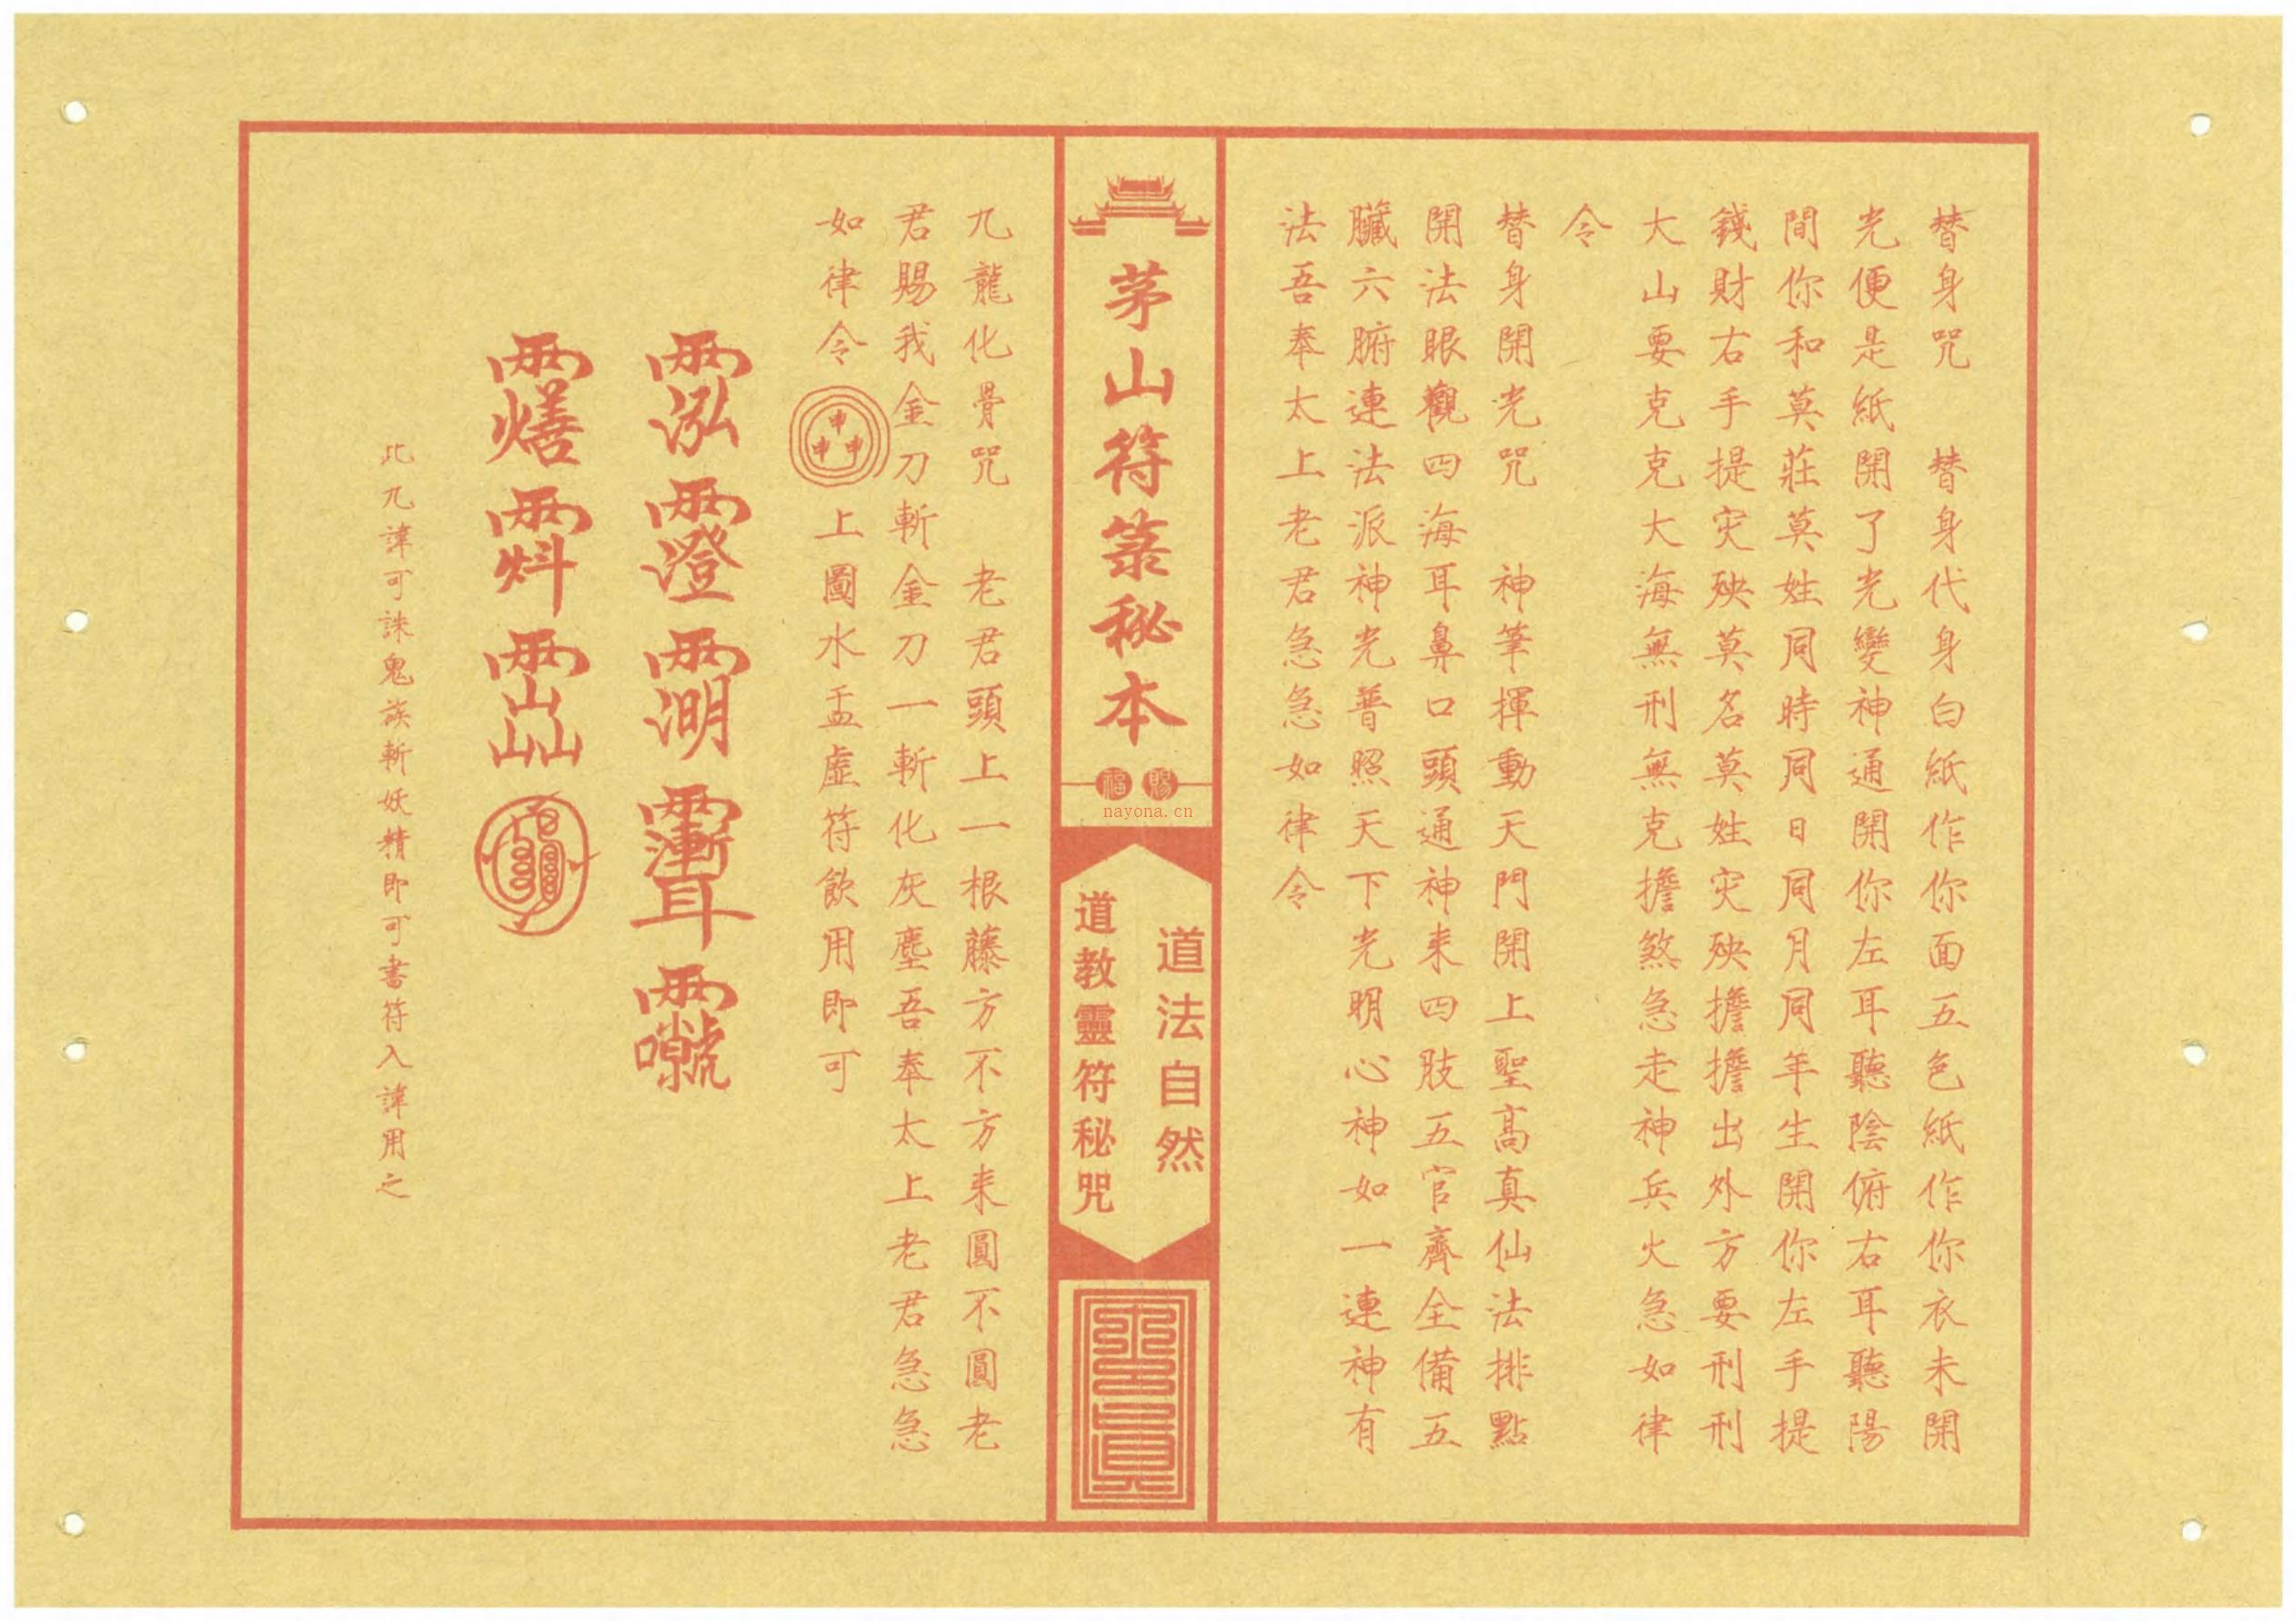 替身咒　替身代身白紙作你面五色紙作你衣未開
光便是紙開了光變神通開你左耳聽陰俯右耳聽陽
間你和莫莊莫姓同時同日同月同年生開你左手提
錢財右手提灾殃莫名莫姓灾殃擔擔出外方要刑刑
大山要克克大海無刑無克擔煞急走神兵火急如律
令
替身開光咒　神筆揮動天門開上聖高真仙法排點
開法眼觀四海耳鼻口頭通神来四肢五官齊全備五
臟六腑連法派神光普照天下光明心神如一連神有
法吾奉太上老君急急如律令
茅山符箓秘本
賜福
nayona.cn
道法自然
道教靈符秘咒
九龍化骨咒　老君頭上一根藤方不方来圓不圓老
君賜我金刀斬金刀一斬化灰塵吾奉太上老君急急
如律令
申申申
上圖水盂虛符飲用即可
比九諱可誅鬼族斬妖精即可書符入諱用之